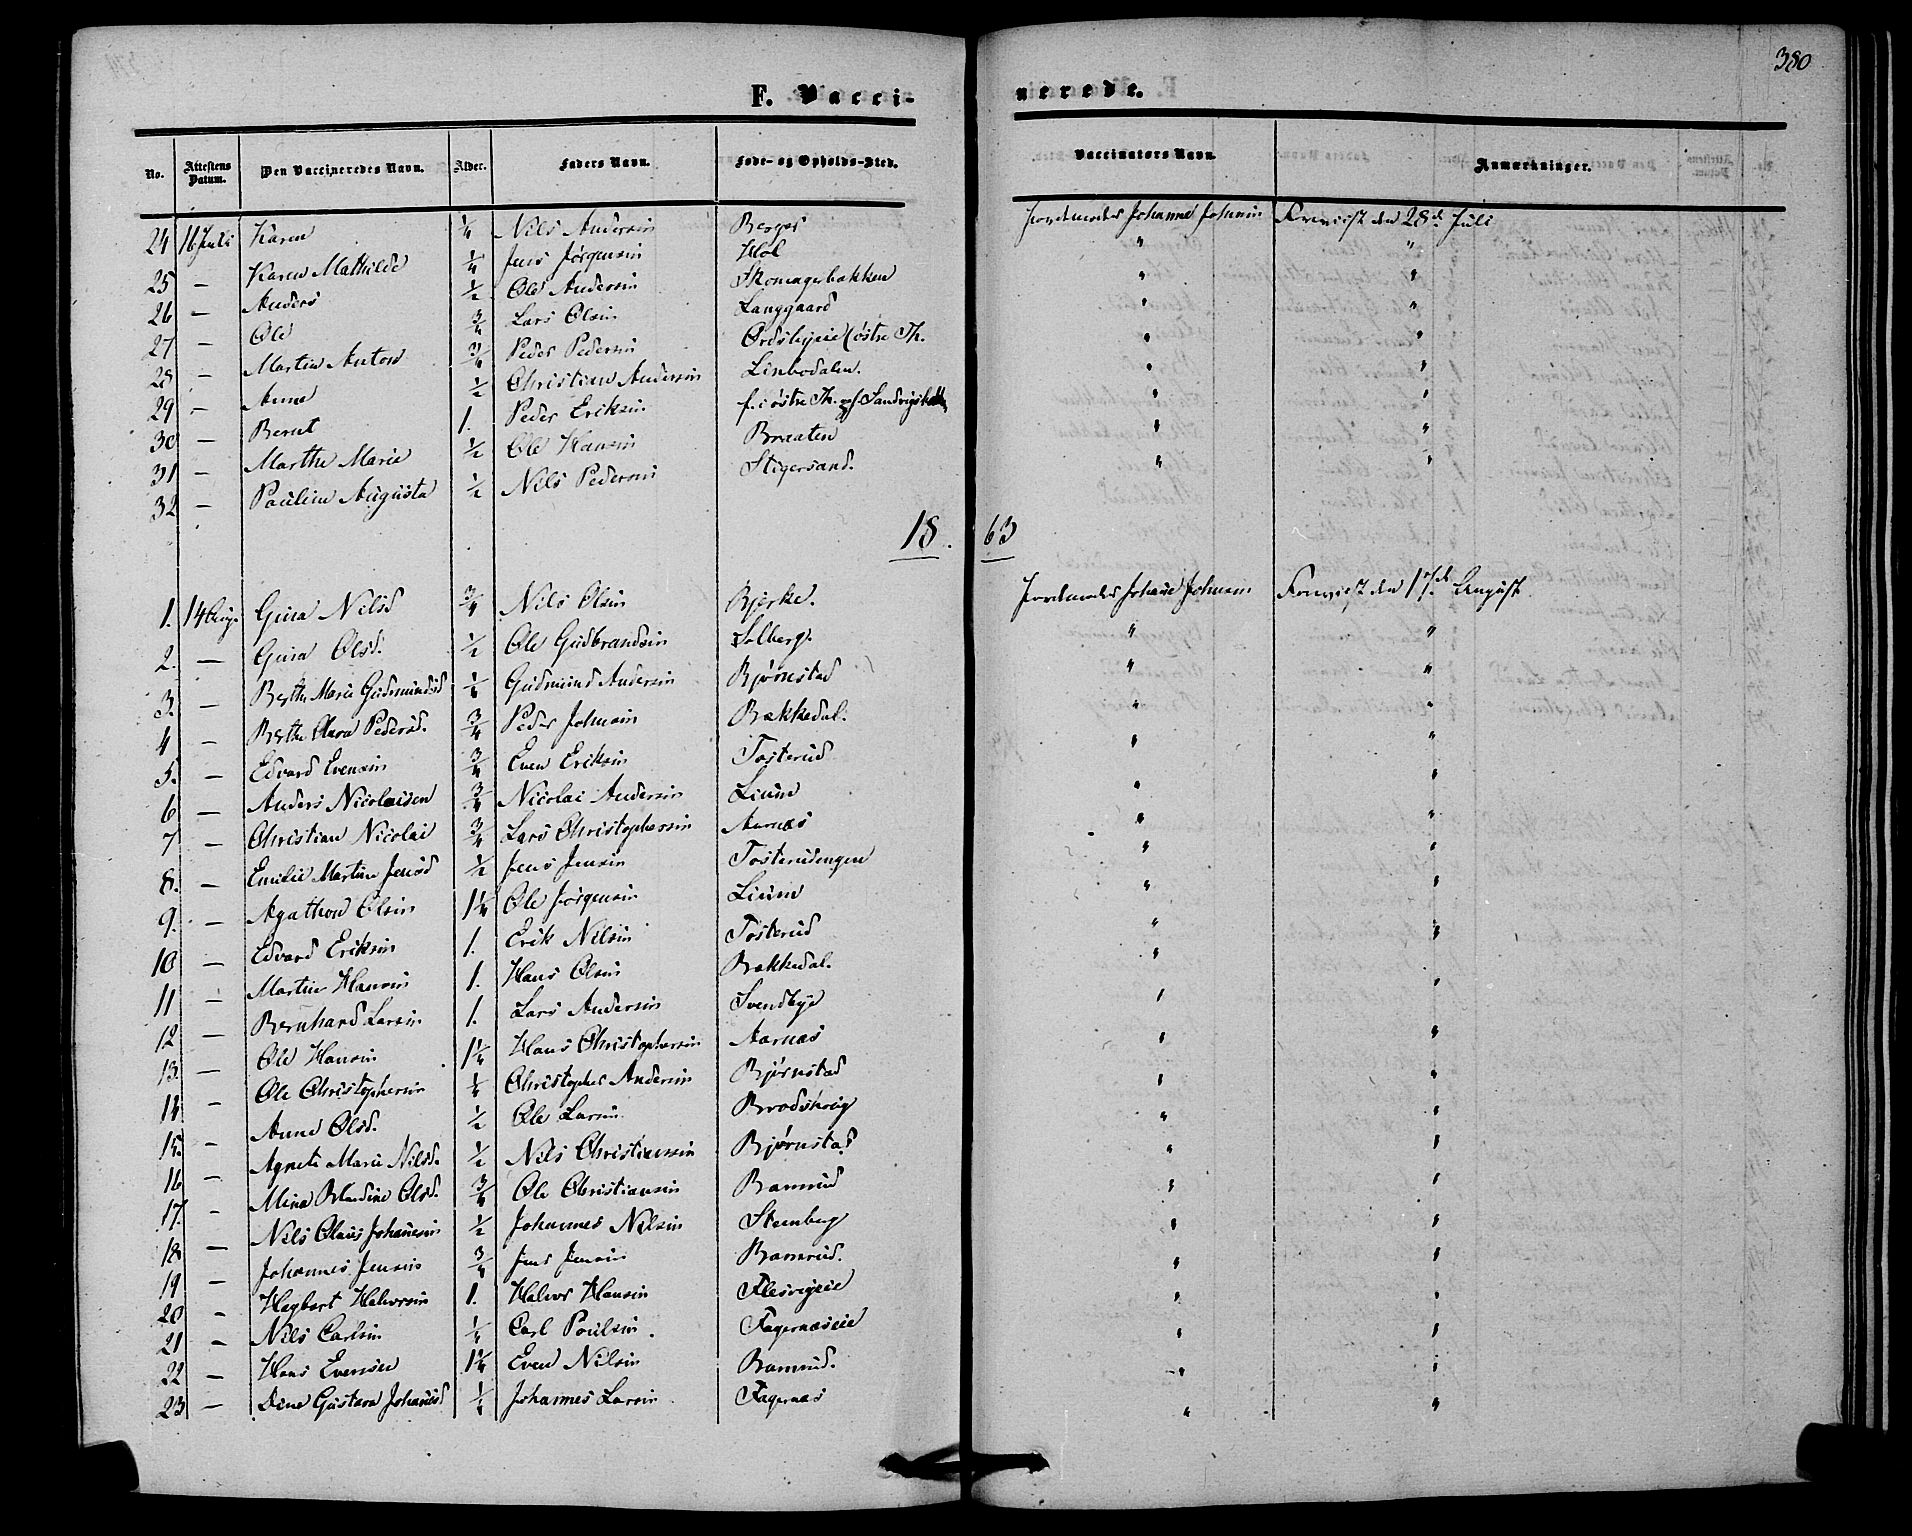 380
F. Vaccinerede.
No. Attestens Datum. Den Vaccineredes Navn. Alder. Faders Navn. Føde- og Opholds-Sted. Vaccinators Navn. Anmærkninger.
24 16 Juli Karen 1/4 Nils Andersen Berger Jordemoder Johanne Johnsen Revisist den 28de Juli
25 — Karen Mathilde 1/4 Jens Jørgensen Hol " "
26 — Anders 1/2 Ole Andersen Skomagerbakken " "
27 — Ole 3/4 Lars Olsen Langgaard " "
28 — Martin Anton 3/4 Peder Pedersen Ordsbyeie (østre Th. " "
29 — Anne 1/2 Christian Andersen Linbodalen. " "
30 — Bernt 1. Peder Eriksen f. i østre Th. " "
31 — Marthe Marie 1/2 Ole Hansen Braaten " "
32 — Pauline Augusta 1/2 Nils Pedersen Stigersand. " "
18. 63
1. 14 Aug. Gina Nilsd 3/4 Nils Olsen Bjerke. Jordemoder Johanne Johnsen den 17de August
2. — Gina Olsd. 1/2 Ole Gudbrandsen Solberg. " "
3. — Berthe Marie Gudmundsd 1/2 Gudmund Andersen Bjørnstad " "
4 — Berthe Clara Pedersd. 3/4 Peder Johnsen Bækkedal. " "
5. — Edvard Evensen 3/4 Even Eriksen Tosterud " "
6 — Anders Nicolaisen 3/4 Nicolai Andersen Linne " "
7 — Christian Nicolai 3/4 Lars Christophersen Aarnæs " "
8. — Emilie Martine Jensd 1/2 Jens Jensen Tosterudengen " "
9. — Agathon Olsen 1 1/4 Ole Jørgensen Linne " "
10 — Edvard Eriksen 1. Erik Nilsen Tosterud " "
11 — Martin Hansen 1. Hans Olsen Bækkedal. " "
12 — Bernhard Larsen 1. Lars Andersen Svendbye " "
13. — Ole Hansen 1 1/4 Hans Christophersen Aarnæs " "
14 — Ole Christophersen 1/4 Christopher Andersen Bjørnstad " "
15. — Anne Olsd. 1/2 Ole Larsen Brodshoug " "
16 — Agnete Marie Nilsd. 1/2 Nils Christiansen Bjørnstad " "
17. — Mina Blandine Olsd. 3/4 Ole Christiansen Bamrud " "
18 — Nils Olaus Johansen 1/2 Johannes Nilsen Stenberg " "
19 — Johannes Jensen 3/4 Jens Jensen Bamrud. " "
20 — Hagbart Halvorsen 1. Halvor Hansen Flesvigeie " "
21 — Nils Carlsen 1/4 Carl Poulsen Fagernæseie " "
22 — Hans Evensen 1 1/4 Even Nilsen Bamrud. " "
23 — Dina Gustava Johansd 1/4 Johannes Larsen Fagernæs " "